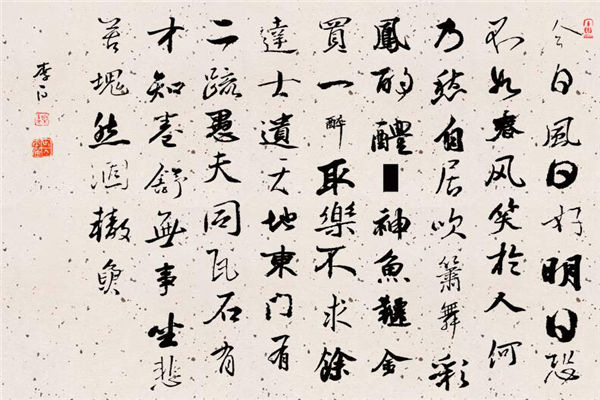 今日風日好明日恐
不如春风笑於人何
乃愁自居吹簫舞彩
鳳酌醴█神魚韆金
買一醉取樂不求餘
達士遺天地東門有
二疏愚夫同瓦石有
才知卷舒無事坐悲
苦塊然涸轍魚
李白